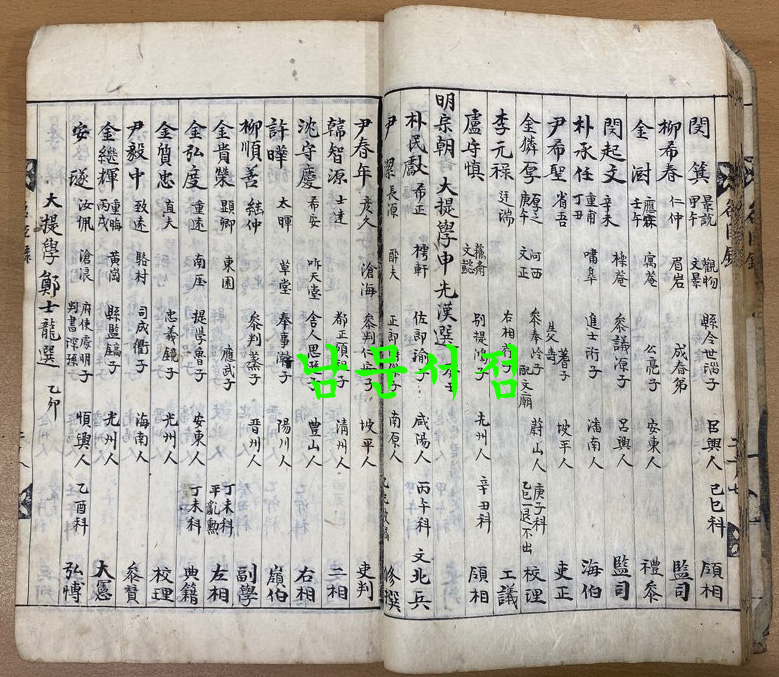 閔箕 景說 甲午 觀物 文景 縣令世瑠子 呂興人 己亥科 領相
柳希春 仁仲 眉岩 成春弟 監司
金澍 應霖 壬午 寓菴 公亮子 安東人 禮參
閔起文 辛未 櫟菴 參議源子 呂興人 監司
朴承任 重甫 丁丑 嘯皐 進士 子 潘南人 海伯
尹希聖 省吾 著子 坡平人 吏正
金麟厚 厚之 庚午 河西 文正 參奉冷子 配文廟 蔚山人 庚子科 乙巳一退不出 校理
李元祿 廷瑞 右相 子 工議
盧守愼 蘇齋 文懿 別提鴻子 光州人 辛丑科 領相
明宗朝 大提學申光漢選
朴民獻 希正 樗軒 佐郎瑜子 咸陽人 丙午科 文北兵
尹潔 長源 醉夫 正郎 子 南原人 修撰
尹春年 彦久 滄海 參判安仁子 坡平人 吏判
韓智源 士達 都正碩 子 淸州人 二相
沈守慶 希安 听天堂 舍人思孫子 豊山人 右相
許曄 太暉 草堂 奉事澣子 陽川人 嶺伯
柳順善 結仲 參判蒸子 晋州人 副學
金貴榮 顯卿 東園 應武子 丁未科 平亂勳 左相
金弘度 重遠 南厓 提學魯子 安東人 丁未科 典籍
金質忠 直夫 忠義鏡子 光州人 校理
尹毅中 致遠 駱村 司成衢子 海南人 參贊
金繼輝 重晦 丙戌 黃岡 縣監鎬子 光州人 大憲
安璲 汝佩 滄浪 府使處明子 判書琛孫 順興人 乙酉科 弘博
大提學鄭士龍選 乙卯
남문서점